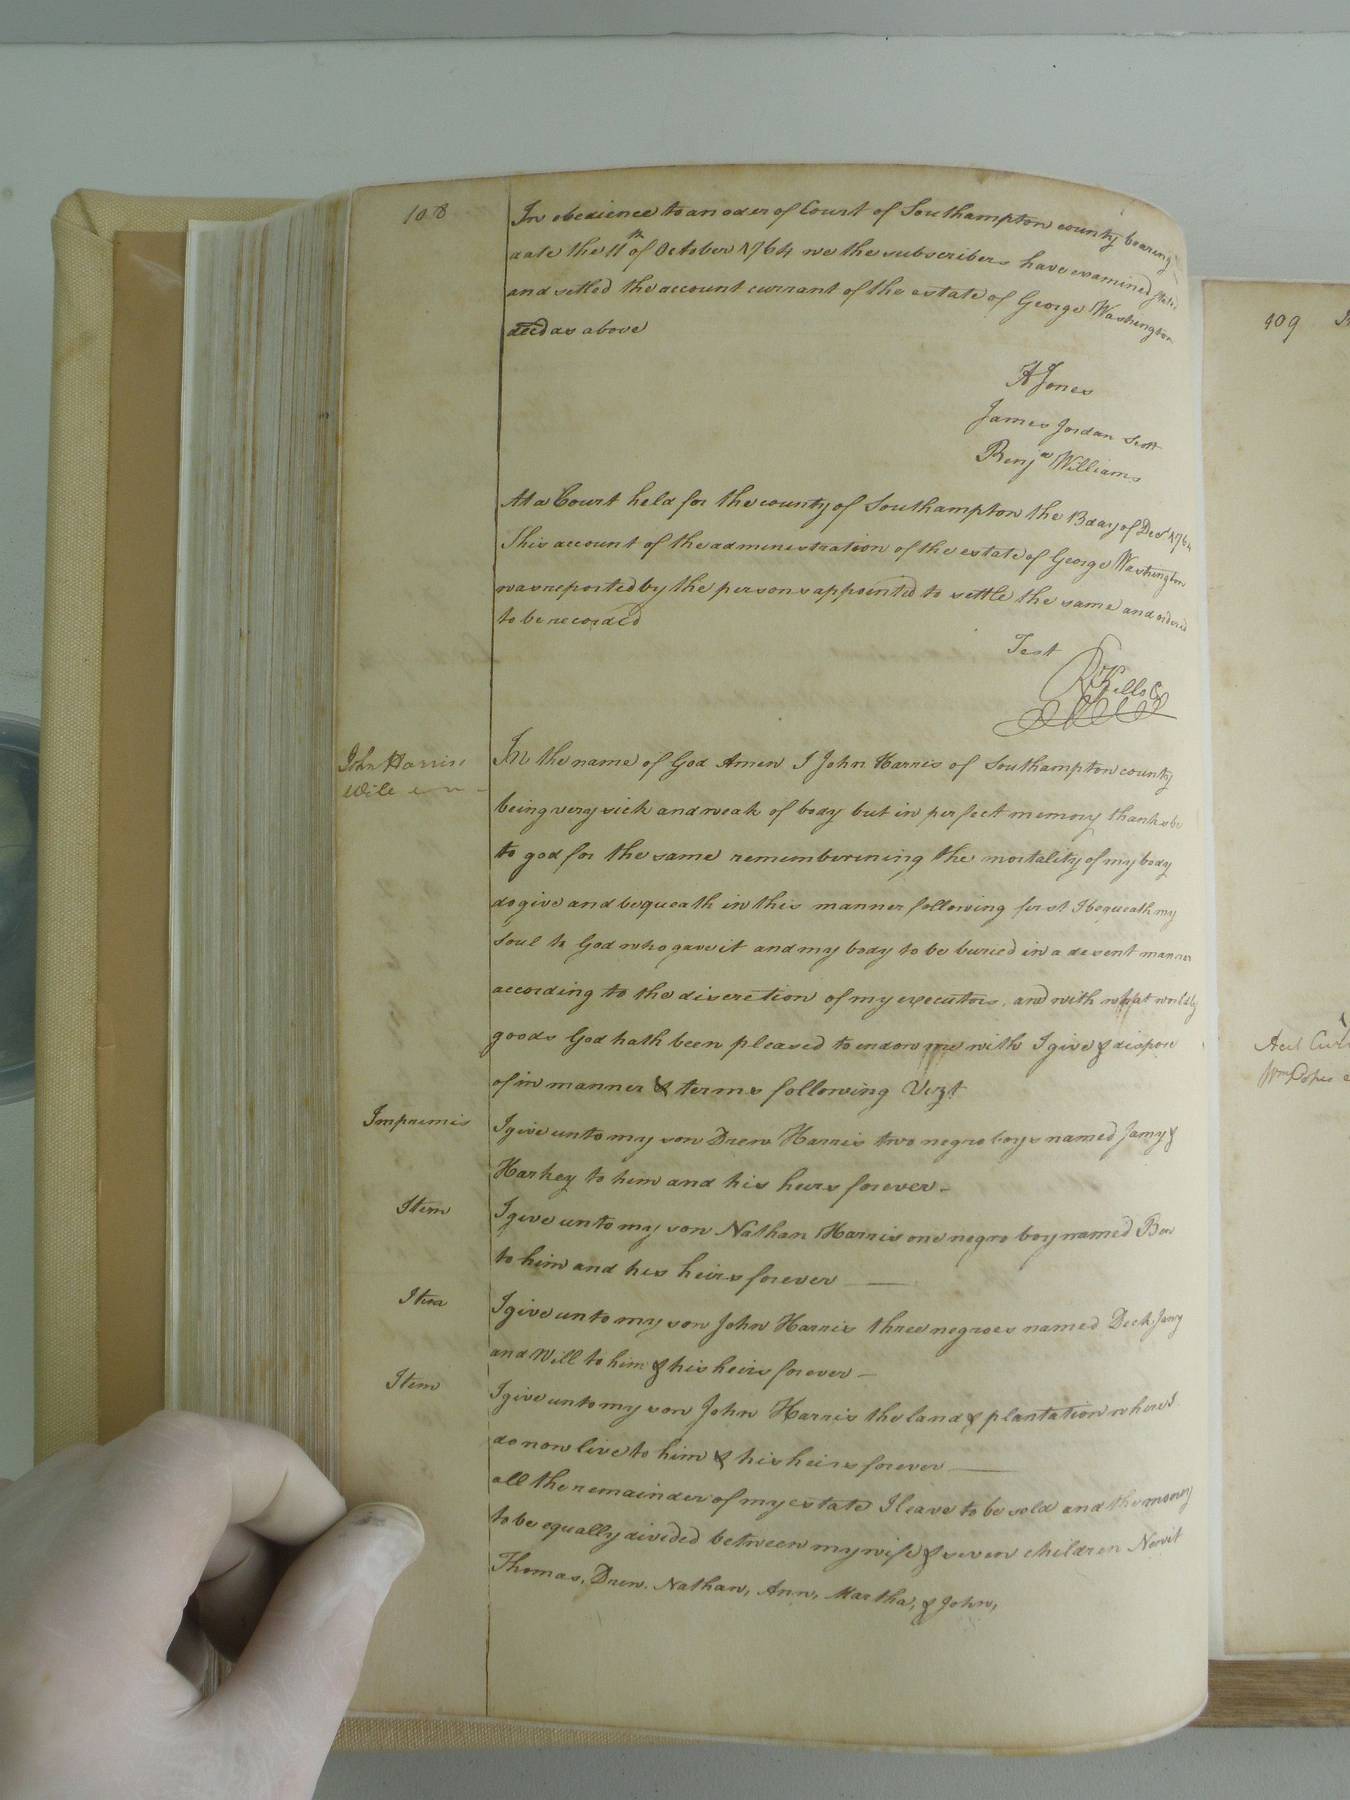 108
In obedience to an oder of Court of Southampton county bearing
date the 11th of October 1764 we the subscribers have examined
and settled the account currant of the estate of George Washington
decd as above
A Jones
James Jordan Scott
Benja Williams
At a Court held for the county of Southampton the 13 day of Decr 1764
This account of the administration of the estate of George Washington
was reported by the persons appointed to settle the same and ordered
to be recorded
Test
R Kello C
John Harris
Will
In the name of God Amen I John Harris of Southampton county
being very sick and weak of body but in perfect memory thanks be
to god for the same rememberining the mortality of my body
do give and bequeath in this manner following first I bequeath my
soul to God who gave it and my body to be buried in a desent manner
according to the discretion of my executors, and with what worldly
goods God hath been pleased to endow me with I give & dispose
of in manner & terms following Vizt
Impremis
I give unto my son Drew Harris two negro boys named Jamy &
Harkey to him and his heirs forever
Item
I give unto my son Nathan Harris one negro boy named Ben
to him and his heirs forever
Item
I give unto my son John Harris three negroes named Deck, Jamy
and Will to him & his heirs forever
Item
I give unto my son John Harris the land & plantation where I
do now live to him & his heirs forever
all the remainder of my estate I leave to be sold and the money
to be equally divided between my wife & seven children Newit
Thomas, Drew, Nathan, Ann, Martha, & John,
409